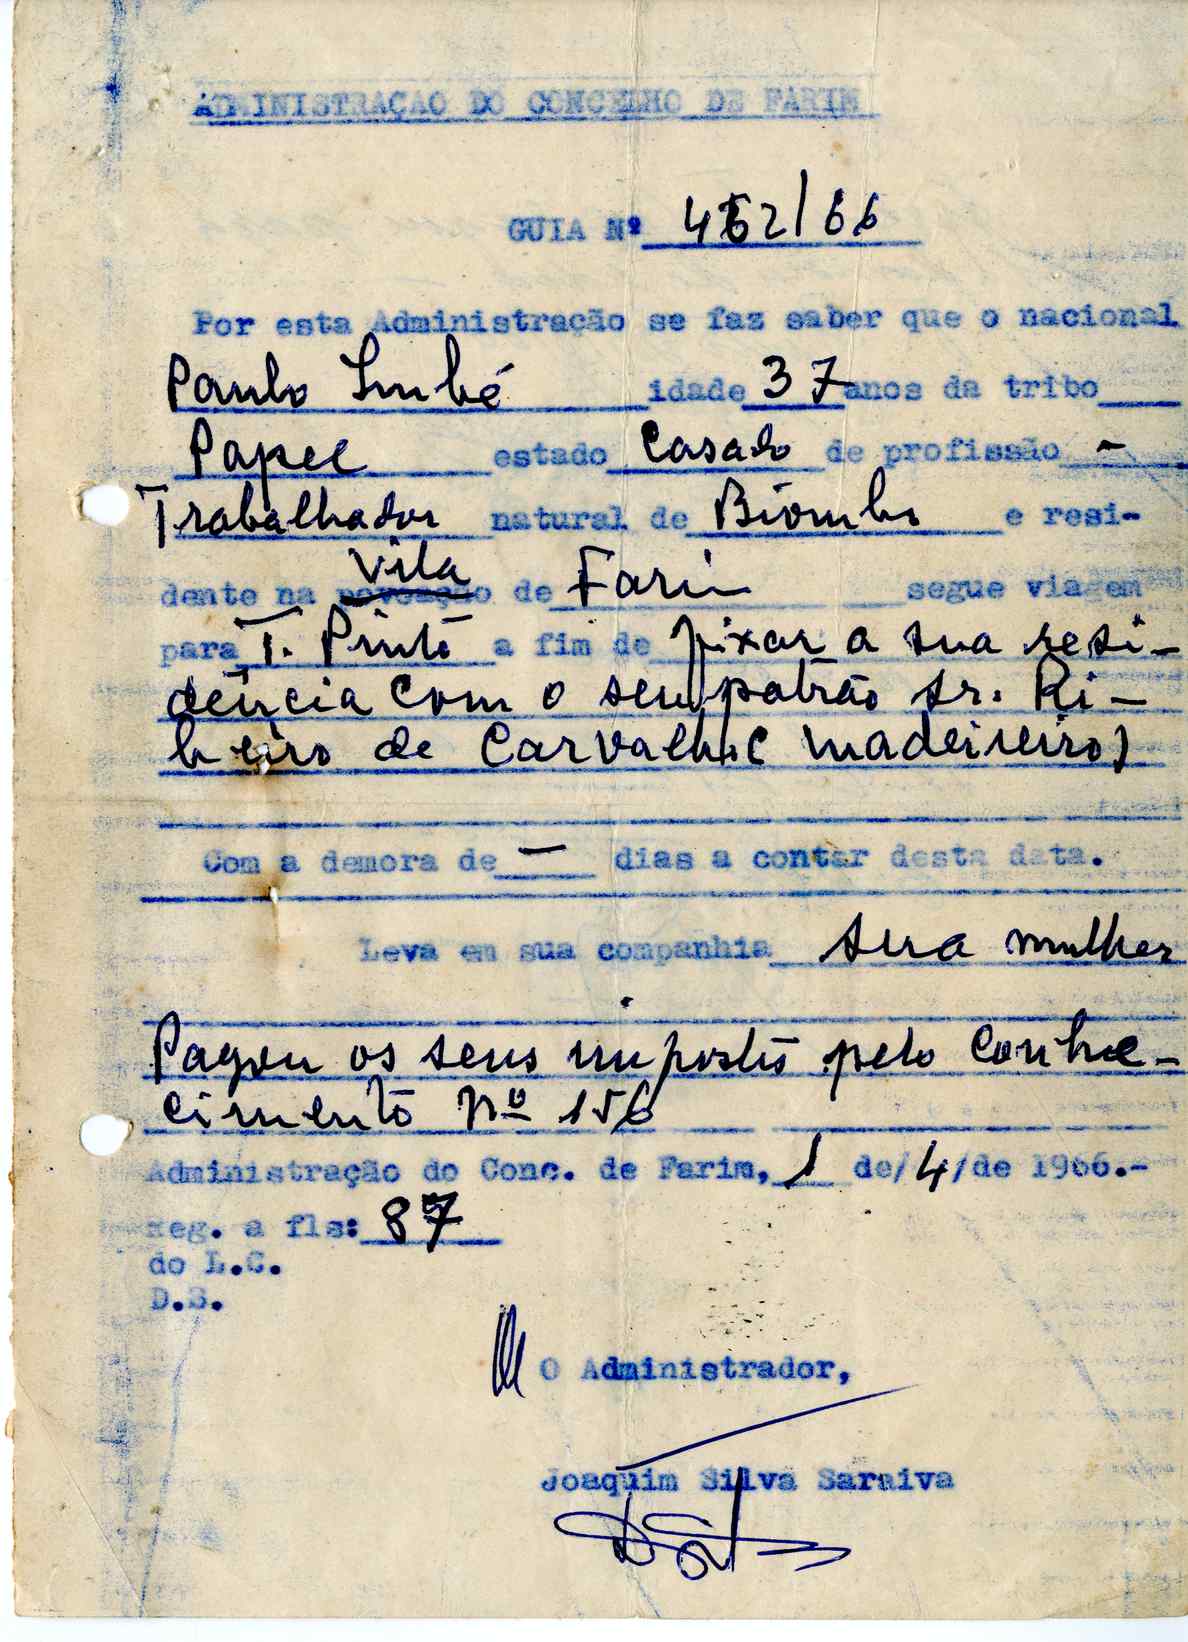 ADMINISTRAÇAO DO CONCELHO DE FARIM
GUIA Nº 462/66
Por esta Administração se faz saber que o nacional
Paulo idade 37 anos da tribo
Papel estado Casado de profissão -
Trabalhador natural de Biombo e resi-
Vila
dente na povoação de Farim segue viagem
para T. Pinto a fim de fixar a sua resi-
dência com o seu patrão sr. Ri-
beiro de Carvalho (madeireiro)
Com a demora de — dias a contar desta data.
Leva em sua companhia sua mulher
Pagou os seus impostos pelo conhe-
cimento nº 156
Administração do Conc. de Farim, 1 de/4/de 1966.-
Reg. a fls: 87
do L.C.
D.S.
O Administrador,
Joaquim Silva Saraiva